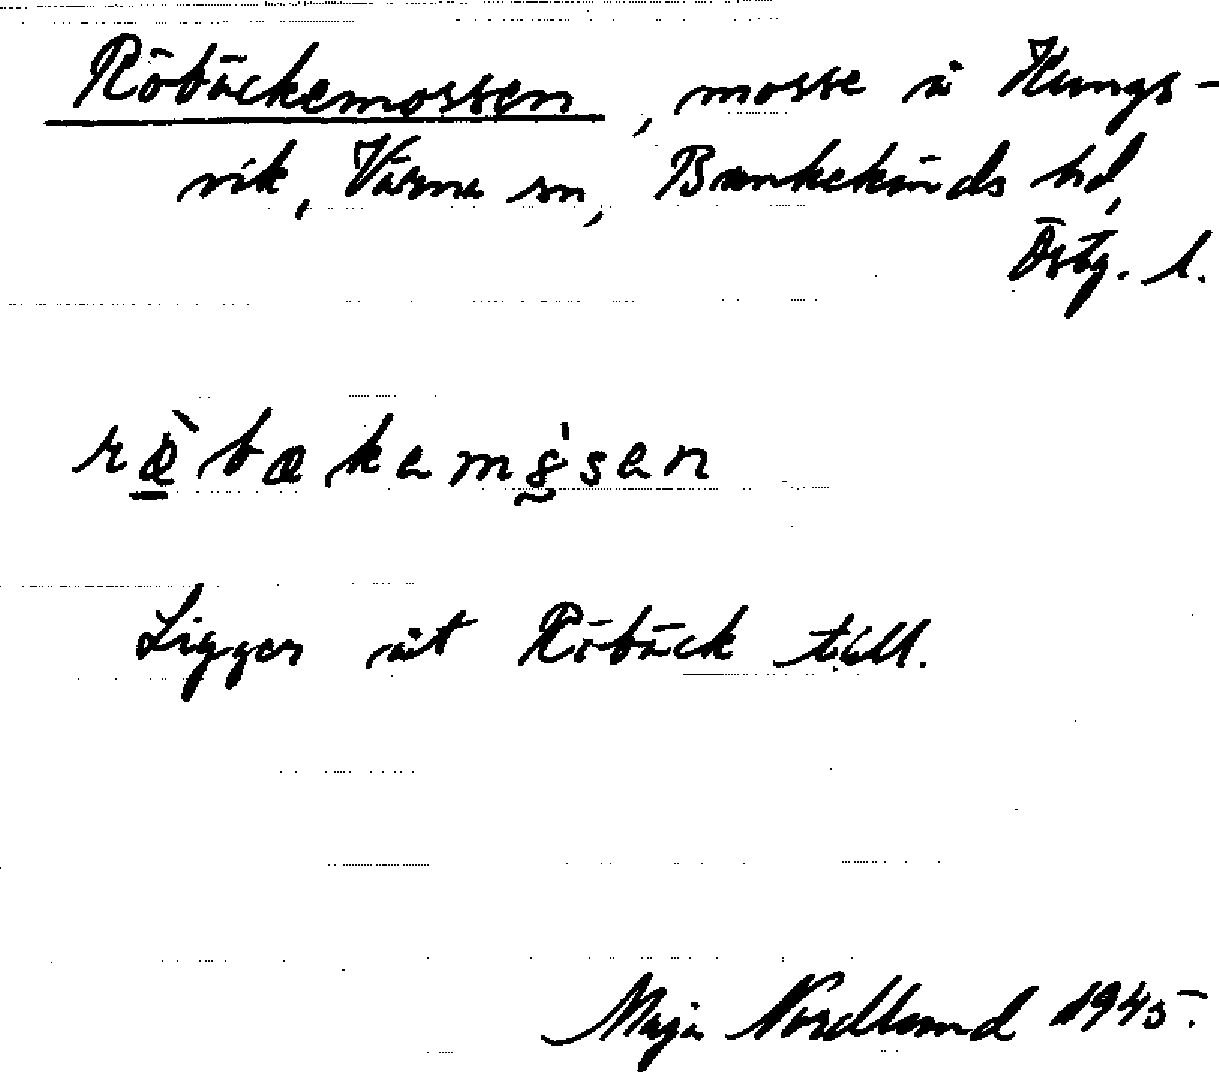 Röbäckemossen, mosse å Kungs-
vik, Värna sn, Bankekinds hd,
Östg. l.
ræ̀bækemssen
Ligger åt Röbäck till.
Maja Nordlund 1945.